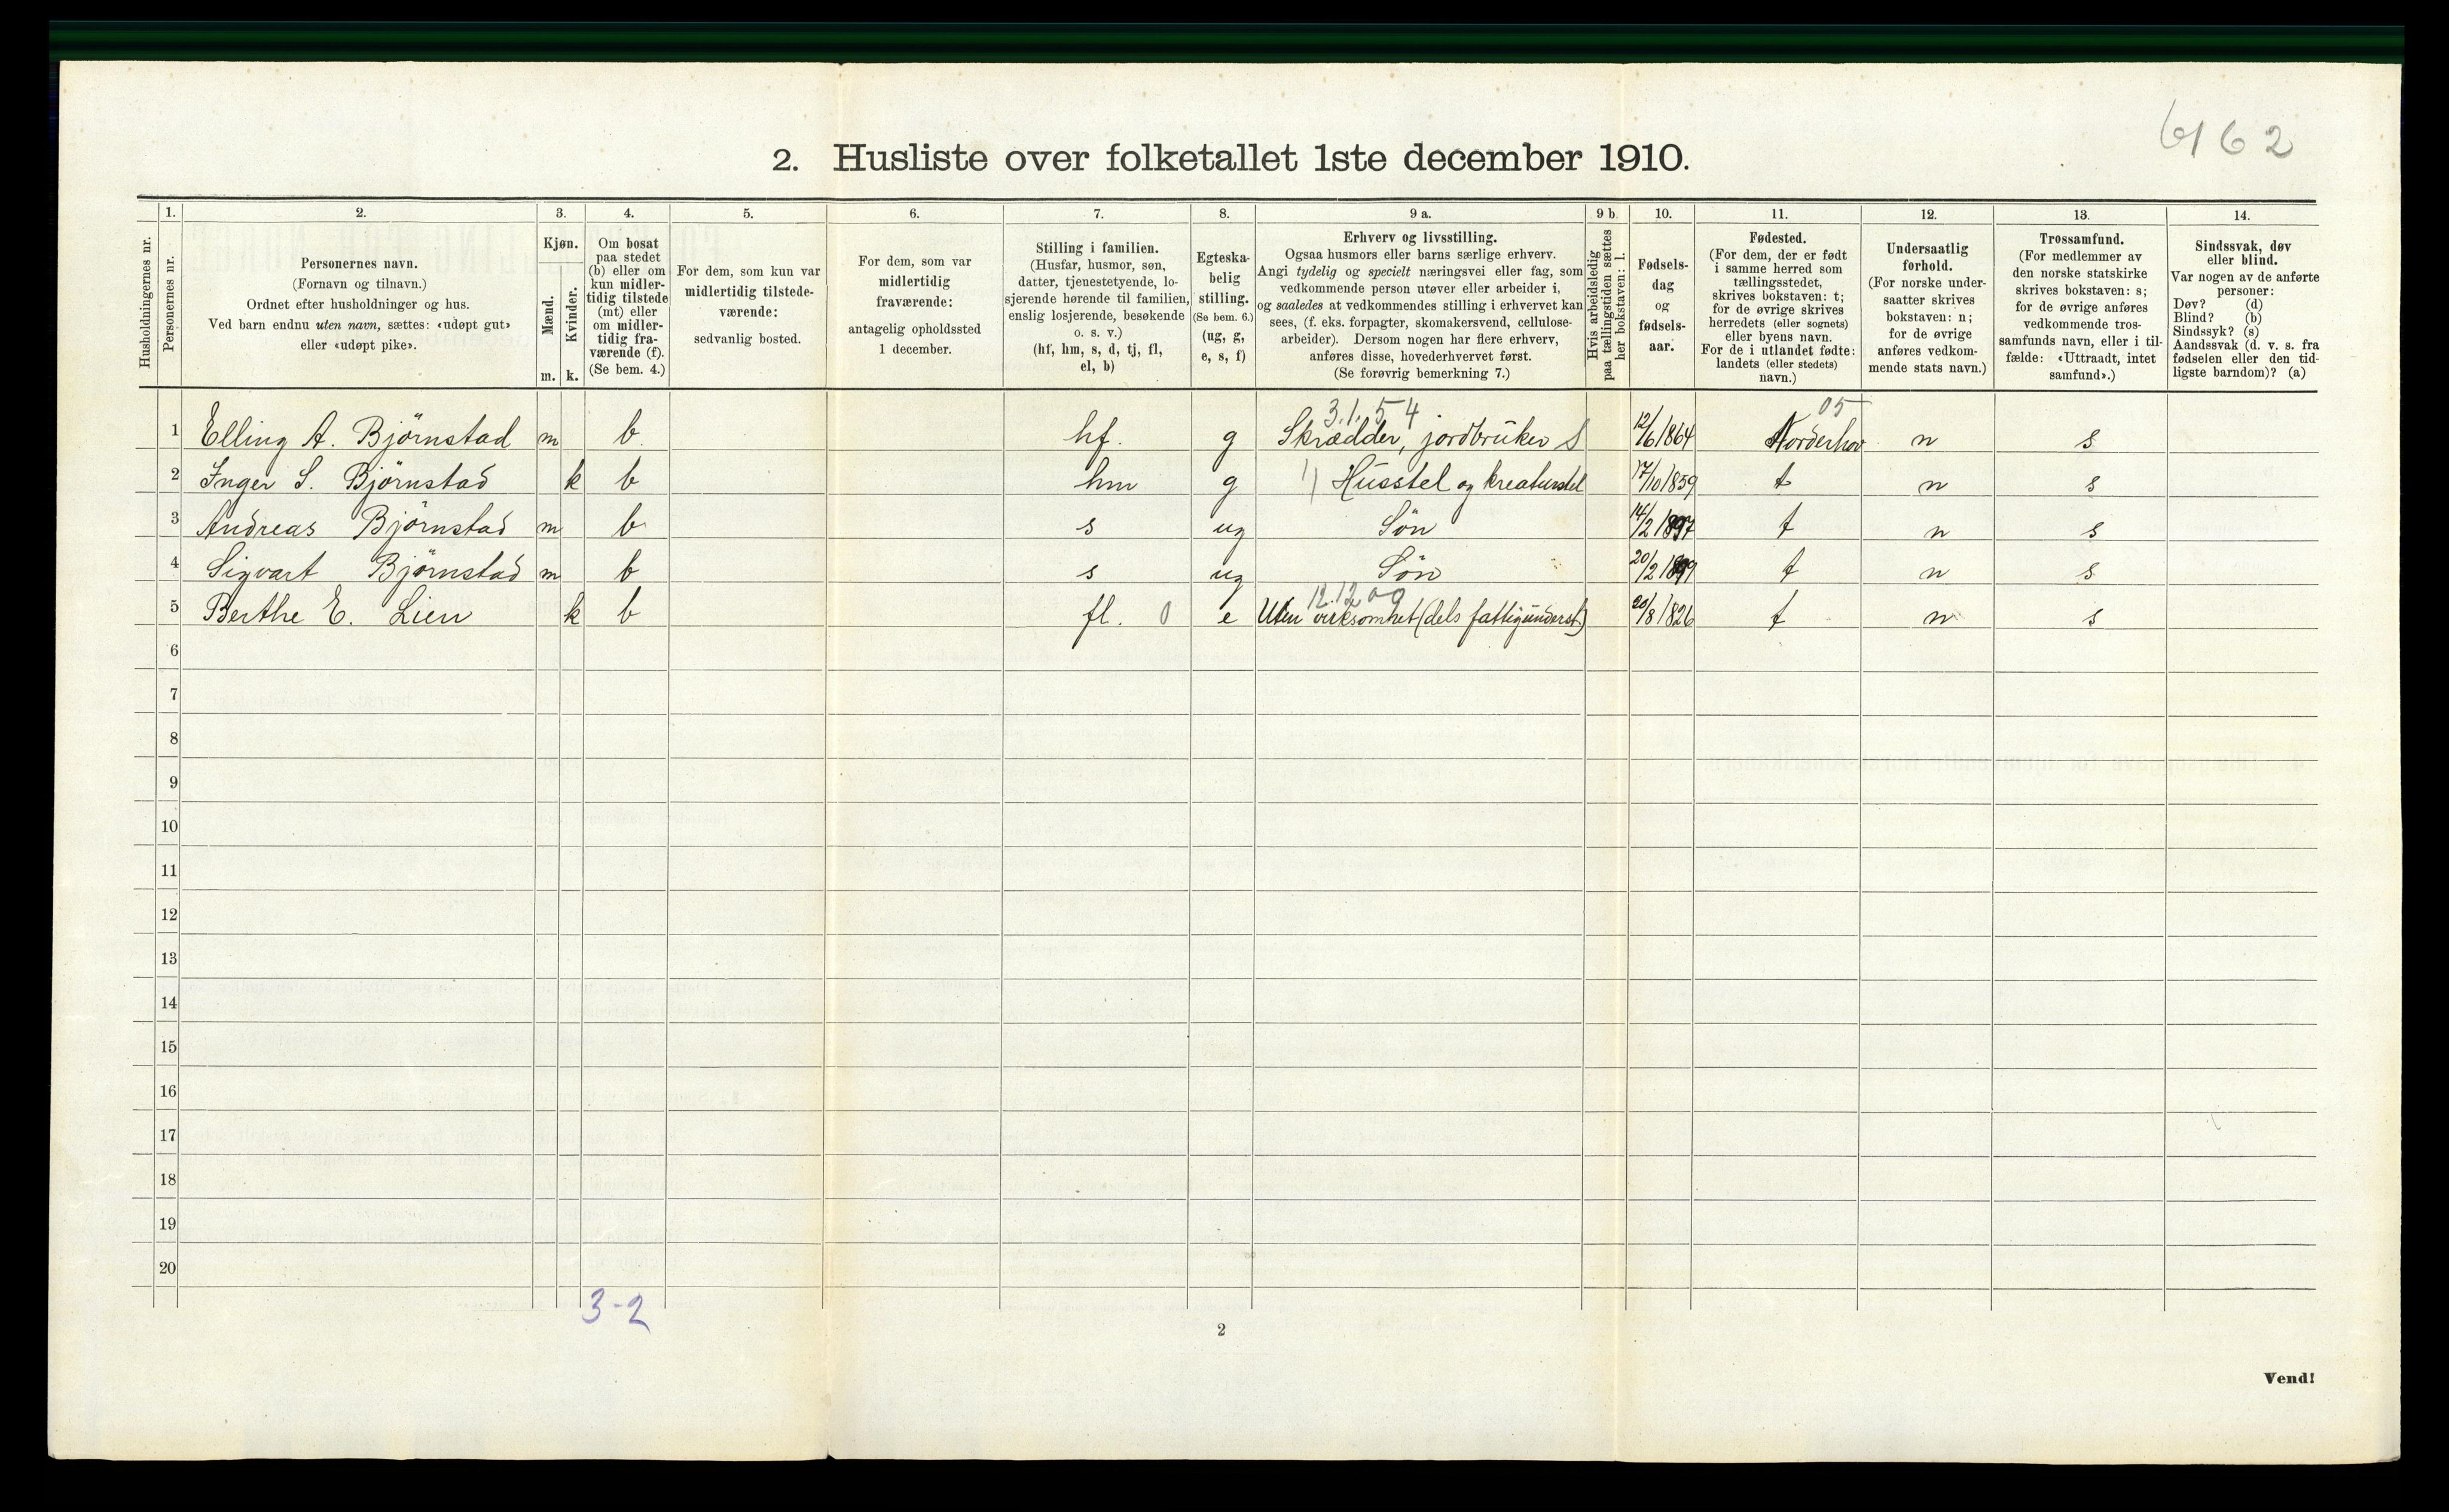 6162
2. Husliste over folketallet 1ste december 1910.
Husholdningernes nr.
1.
Personernes nr.
2.
Personernes navn.
(Fornavn og tilnavn.)
Ordnet efter husholdninger og hus.
Ved barn endnu uten navn, sættes: «udøpt gut»
eller «udøpt pike».
3.
Kjøn.
Mænd.
Kvinder.
m. k.
4.
Om bosat
paa stedet
(b) eller om
kun midler-
tidig tilstede
(mt) eller
om midler-
tidig fra-
værende (f).
(Se bem. 4.)
5.
For dem, som kun var
midlertidig tilstede-
værende:
sedvanlig bosted.
6.
For dem, som var
midlertidig
fraværende:
antagelig opholdssted
1 december.
7.
Stilling i familien.
(Husfar, husmor, søn,
datter, tjenestetyende, lo-
sjerende hørende til familien,
enslig losjerende, besøkende
o. s. v.)
(hf, hm, s, d, tj, fl,
el, b)
8.
Egteska-
belig
stilling.
(Se bem. 6.)
(ug, g,
e, s, f)
9 a.
Erhverv og livsstilling.
Ogsaa husmors eller barns særlige erhverv.
Angi tydelig og specielt næringsvei eller fag, som
vedkommende person utøver eller arbeider i,
og saaledes at vedkommendes stilling i erhvervet kan
sees, (f. eks. forpagter, skomakersvend, cellulose-
arbeider). Dersom nogen har flere erhverv,
anføres disse, hovederhvervet først.
(Se forøvrig bemerkning 7.)
9 b.
Hvis arbeidsledig
paa tællingstiden sættes
her bokstaven: l.
10.
Fødsels-
dag
og
fødsels-
aar.
11.
Fødested.
(For dem, der er født
i samme herred som
tællingsstedet,
skrives bokstaven: t;
for de øvrige skrives
herredets (eller sognets)
eller byens navn.
For de i utlandet fødte:
landets (eller stedets)
navn.)
12.
Undersaatlig
forhold.
(For norske under-
saatter skrives
bokstaven: n;
for de øvrige
anføres vedkom-
mende stats navn.)
13.
Trossamfund.
(For medlemmer av
den norske statskirke
skrives bokstaven: s;
for de øvrige anføres
vedkommende tros-
samfunds navn, eller i til-
fælde: «Uttraadt, intet
samfund».)
14.
Sindssvak, døv
eller blind.
Var nogen av de anførte
personer:
Døv? (d)
Blind? (b)
Sindssyk? (s)
Aandssvak (d. v. s. fra
fødselen eller den tid-
ligste barndom)? (a)
3.1.54 05
1 Elling A. Björnstad m b hf. g Skrædder, jordbruker S 12/6 1864 Norderhov n s
2 Inger S. Björnstad k b hm g 1) Husstel og kreaturstel 17/10 1859 t n s
3 Andreas Björnstad m b s ug Sön 14/2 1897 t n s
4 Sigvart Björnstad m b s ug Sön 20/2 1899 t n s
12.12 00
5 Berthe E. Lien k b fl. 0 e Uten virksomhet (dels fattigunderst.) 20/8 1826 t n s
6
7
8
9
10
11
12
13
14
15
16
17
18
19
20
3-2
2
Vend!